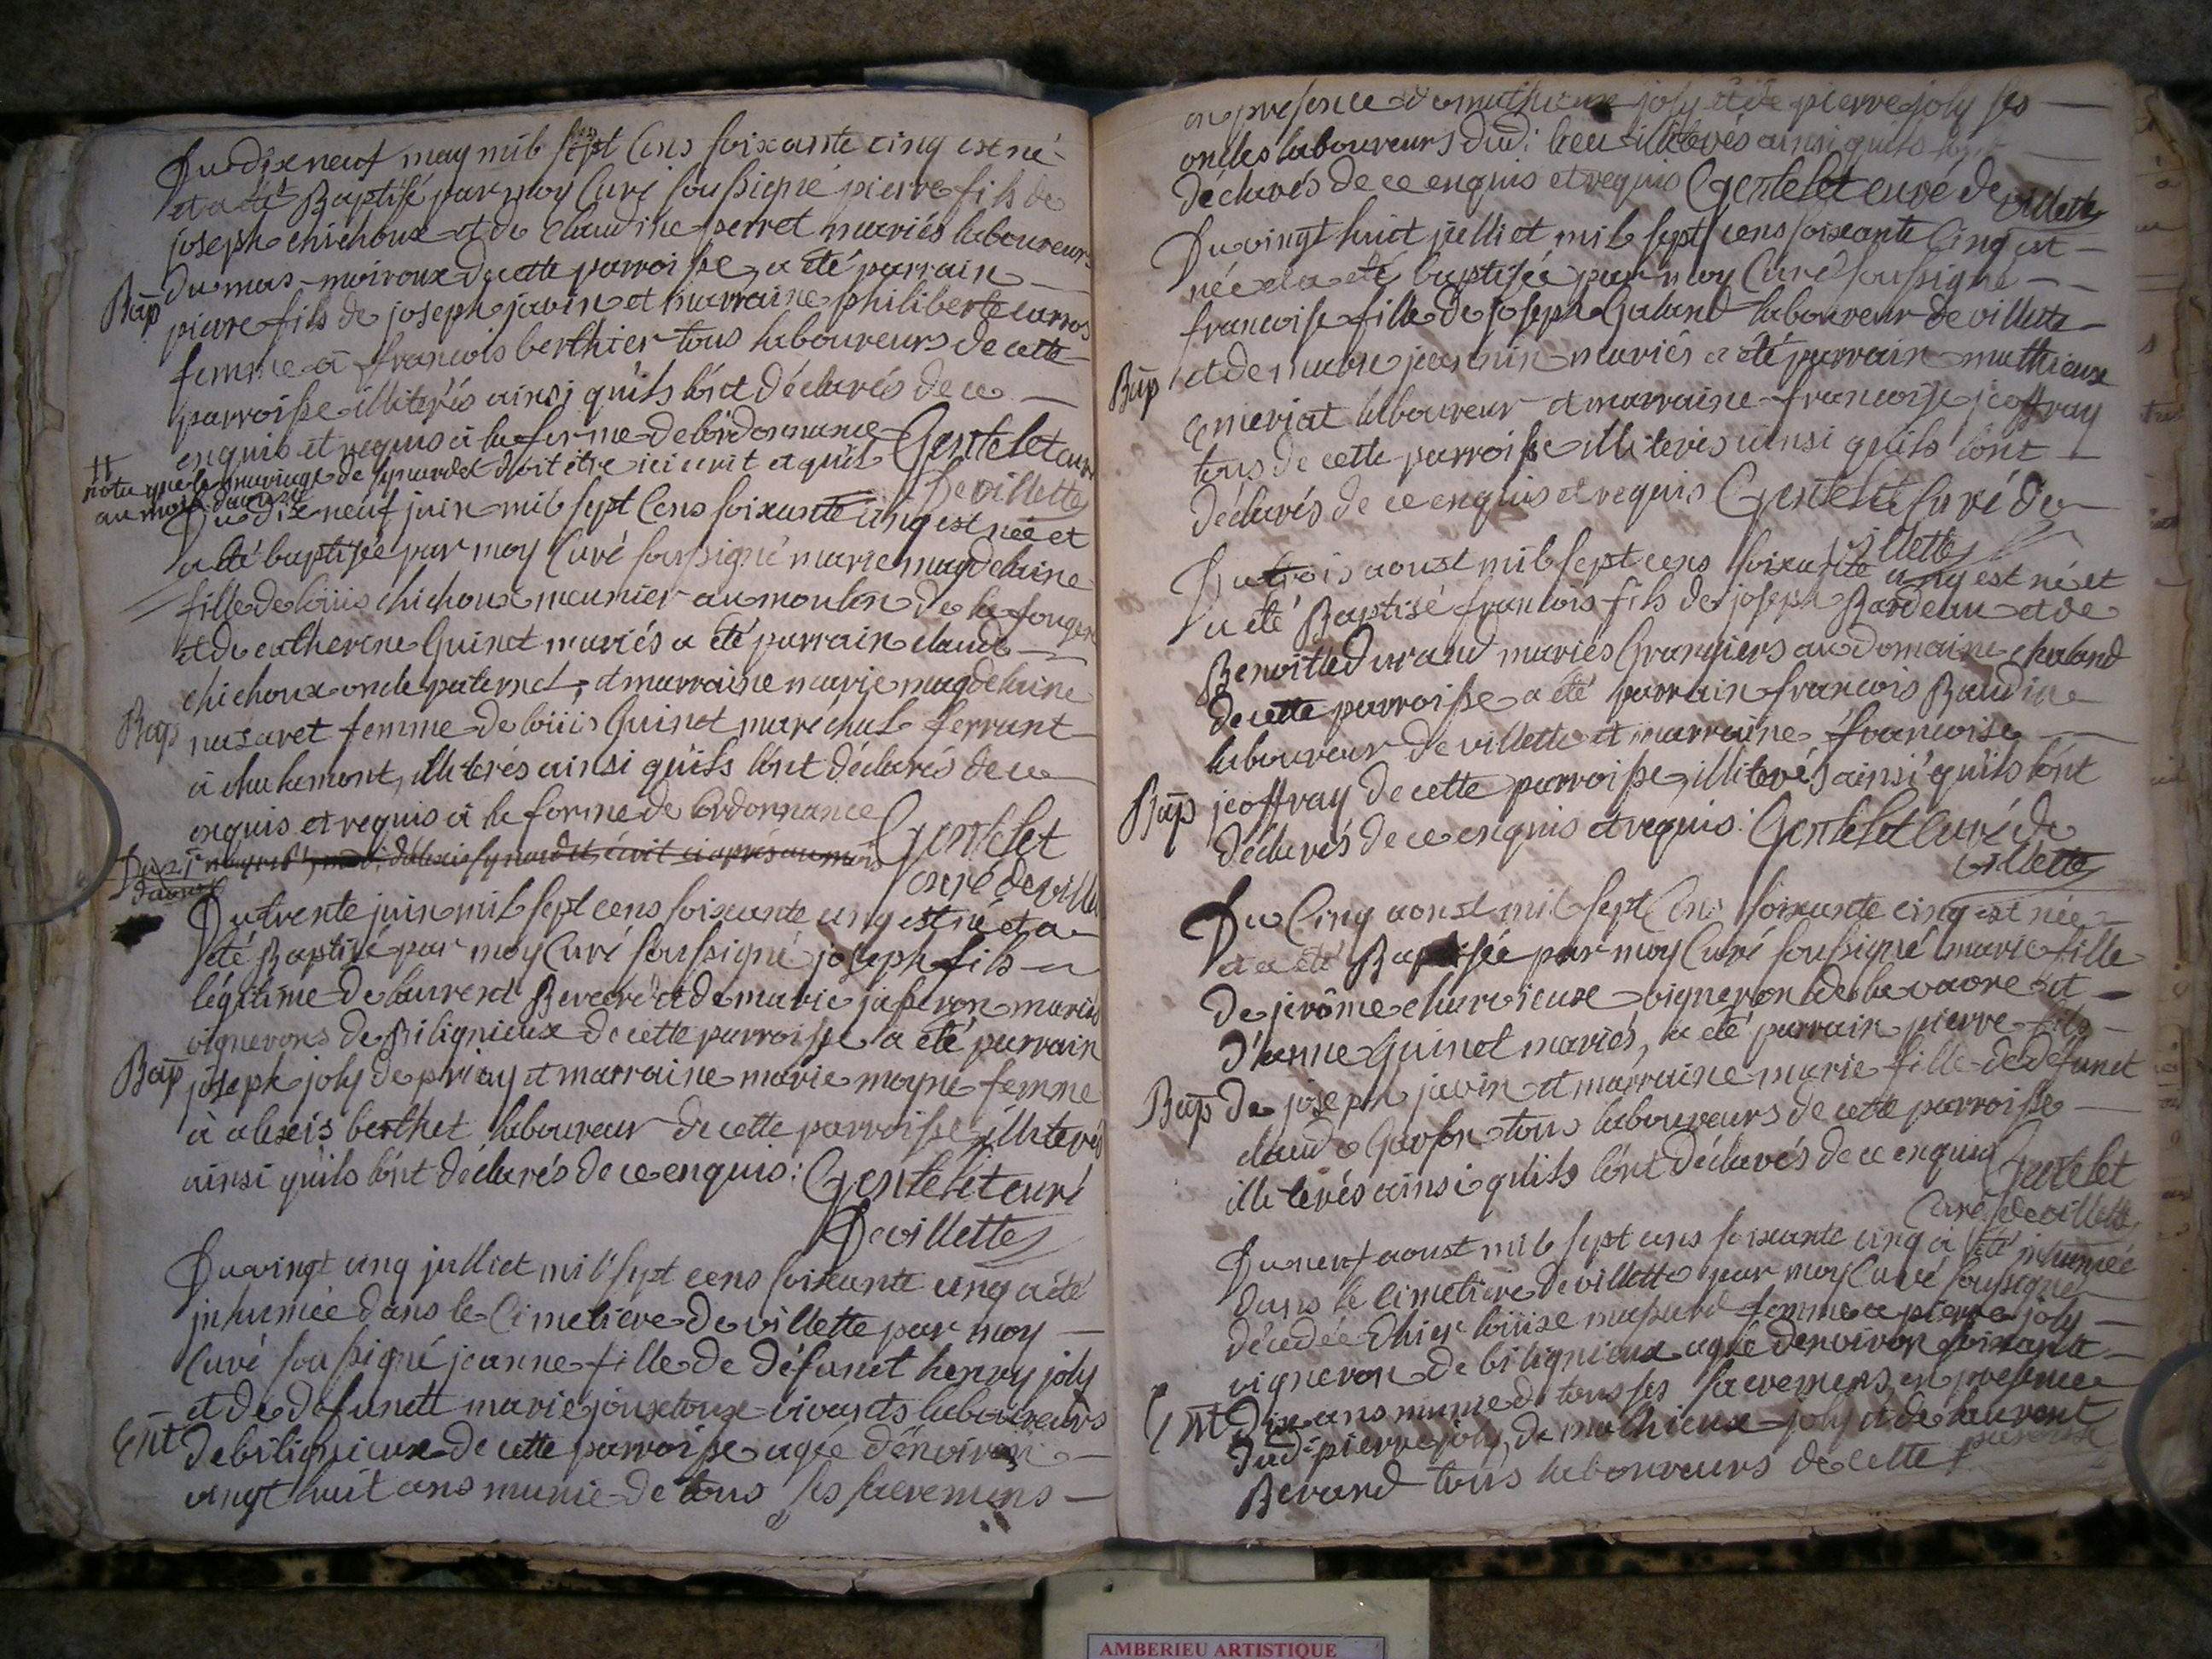 Du dix neuf may mil sept cens soixante cinq est né
et a été Baptisé par moy Curé soussigné pierre fils de
joseph chichoux et de claudine perret mariés laboureurs
du mas moiroux de cette parroisse, a été parrain
Bap
piere fils de joseph javin et marraine philiberte carros
femme a francois berthier tous laboureurs de cette
parroisse illiterés ainsi qu'ils l'ont déclarés de ce
enquis et requis à la forme de l'ordonnance Gentelet curé
de villette
nota que le mariage de doit être ici ecrit et quil
au mois d'aoust
Du dix neuf juin mil sept cens soixante cinq est née et
a été baptisée par moy Curé soussigné marie magdelaine
fille de loüis chichoux meunier au moulin de la fouge
et de catherine Guinet mariés a été parrain claude
chichoux oncle paternel, et marraine marie magdelaine
Bap
nasaret femme de loüis Guinet maréchal ferrant
à chalamont, illiterés ainsi qu'ils l'ont déclarés de ce
enquis et requis à la forme de l'ordonnance Gentelet
curé de villette
écrit ci après au mois
d'aoust
Du trente juin mil sept cens soixante cinq est né et a
été Baptisé par moy Curé soussigné joseph fils
légitime de laurent Berard et de marie jaseron mariés
vignerons de Bilignieux de cette parroisse a été parrain
Bap
joseph joly de priay et marraine marie moyne femme
à alexis berthet laboureur de cette parroisse illiterés
ainsi qu'ils l'ont déclarés de ce enquis: Gentelet curé
de villette
Du vingt cinq julliet mil sept cens soixante cinq a été
inhumée dans le Cimetiere de villette par moy
Curé soussigné jeanne fille de défunct henry joly
et de defuncte marie jouxtoux vivants laboureurs
Ent
de bilignieux de cette parroisse agée d'environ
vingt huit ans munie de tous ses sacremens
en presence de mathieux joly et de pierre joly ses
oncles laboureurs dud: lieu illiterés ainsi quils l'ont
déclarés de ce enquis et requis Gentelet curé de
villette
Du vingt huit julliet mil sept cens soixante Cinq est
née et a été baptisée par moy Curé soussigné
francoise fille de joseph Galand laboureur de villette
et de marie jeannin mariés a été parrain mathieux
Bap
Emeriat laboureur et marraine francoise jeoffray
tous de cette parroisse illiterés ainsi quils l'ont
déclarés de ce enquis et requis Gentelet Curé de
villette
Du trois aoust mil sept cens soixante cinq est né et
a été Baptisé francois fils de joseph Bardeau et de
Benoitte durand mariés Grangiers au domaine chaland
de cette parroisse a été parrain francois Baudin
laboureur de villette et marraine francoise
Bap
jeoffray de cette parroisse, illiterés ainsi qu'ils l'ont
déclarés de ce enquis et requis: Gentelet Curé de
villette
Du Cinq aoust mil sept cens soixante cinq est née
et a été Baptisée par moy Curé soussigné marie fille
de jerôme charvieux vigneron de la vavre et
d'anne Guinet mariés, a été parrain pierre fils
Bap
de joseph javin et marraine marie fille de defunct
claude Garson tous laboureurs de cette parroisse
illiterés ainsi qu'ils l'ont déclarés de ce enquis Gentelet
Curé de villette
Du neuf aoust mil sept cens soixante cinq a été inhumée
dans le cimetiere de villette par moy Curé soussigné
décedée d'hier loüise masurd femme a pierre joly
vigneron de bilignieux agée d'environ soixante
Ent
dix ans munie de tous ses sacremens en presence
dud: pierre joly, de mathieux joly et de laurent
Berard tous laboureurs de cette paroisse
AMBERIEU ARTISTIQUE